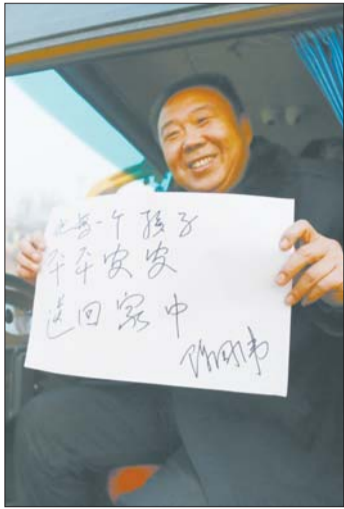 让每一个孩子
平平安安
送回家中